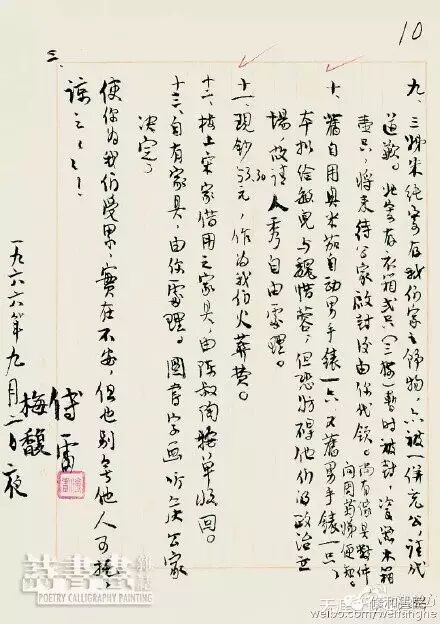 10
九、三姊朱纯寄存我们家之饰物，亦被一併充公，请代
道歉。她寄存衣箱弍只（三楼）暂时被封，瓷器木箱
壹只，将来待公家启封後由你代领。尚有傢具数件，
问周菊娣便知。
十、舊自用奥米茄自动男手錶一只，又舊男手錶一只，
本拟给敏兒与魏惜蓉，但恐妨碍他们的政治立
場，故请人秀自由处理。
十一、现钞53.30元，作为我们火葬费。
十二、楼上宋家借用之家具，由陈叔陶按单收回。
十三、自有家具，由你處理。图书字画听候公家
决定。
使你为我们受累，实在不安，但也别无他人可托，
谅之谅之！
傅雷
梅馥
一九六六年九月二日夜
三
詩書畫
雜誌
POETRY CALLIGRAPHY PAINTING
修和書鴨
weibo.com/weifanghe